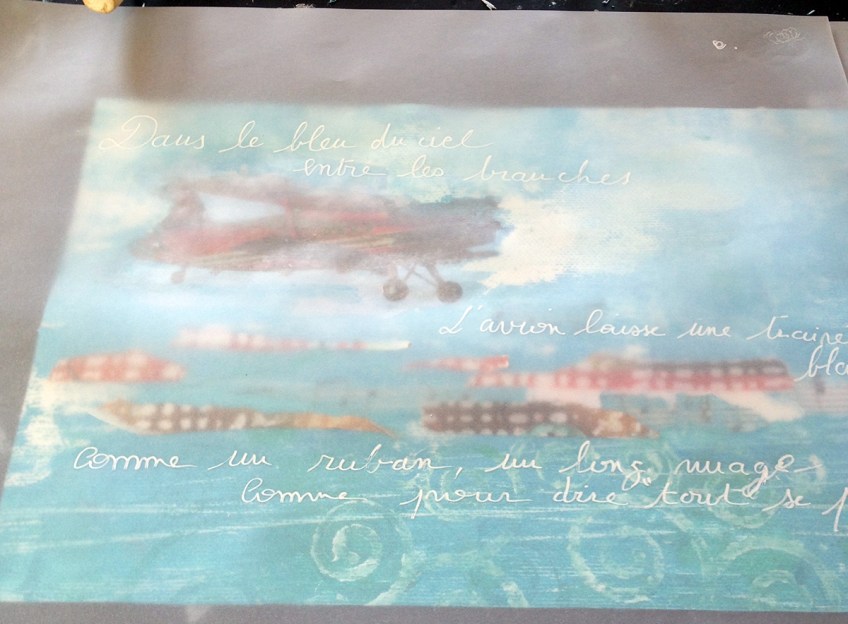 Dans le bleu du ciel
entre les branches
L'avion laisse une
comme un ruban, un long nuage
Comme pour dire "tout" se